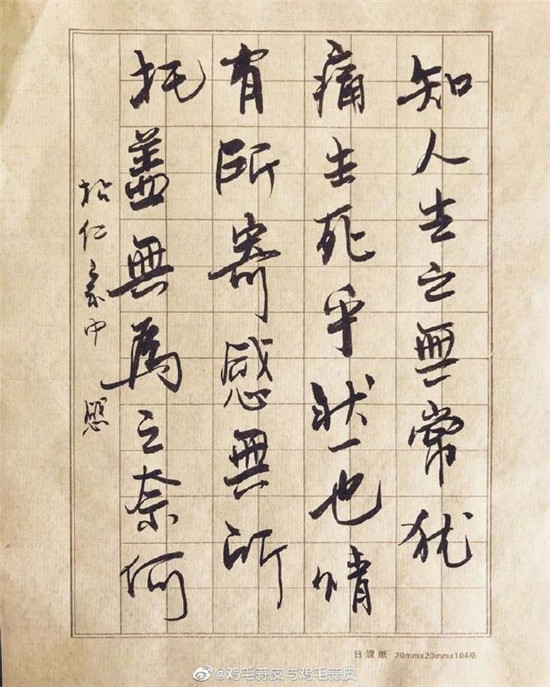 知人生之無常犹
痛生死乎状一也情
有所寄感無所
托蓋無為之奈何
於仁豪中
日課紙 20mmx20mmx104格
@鸡毛蒜皮与鸡毛蒜皮